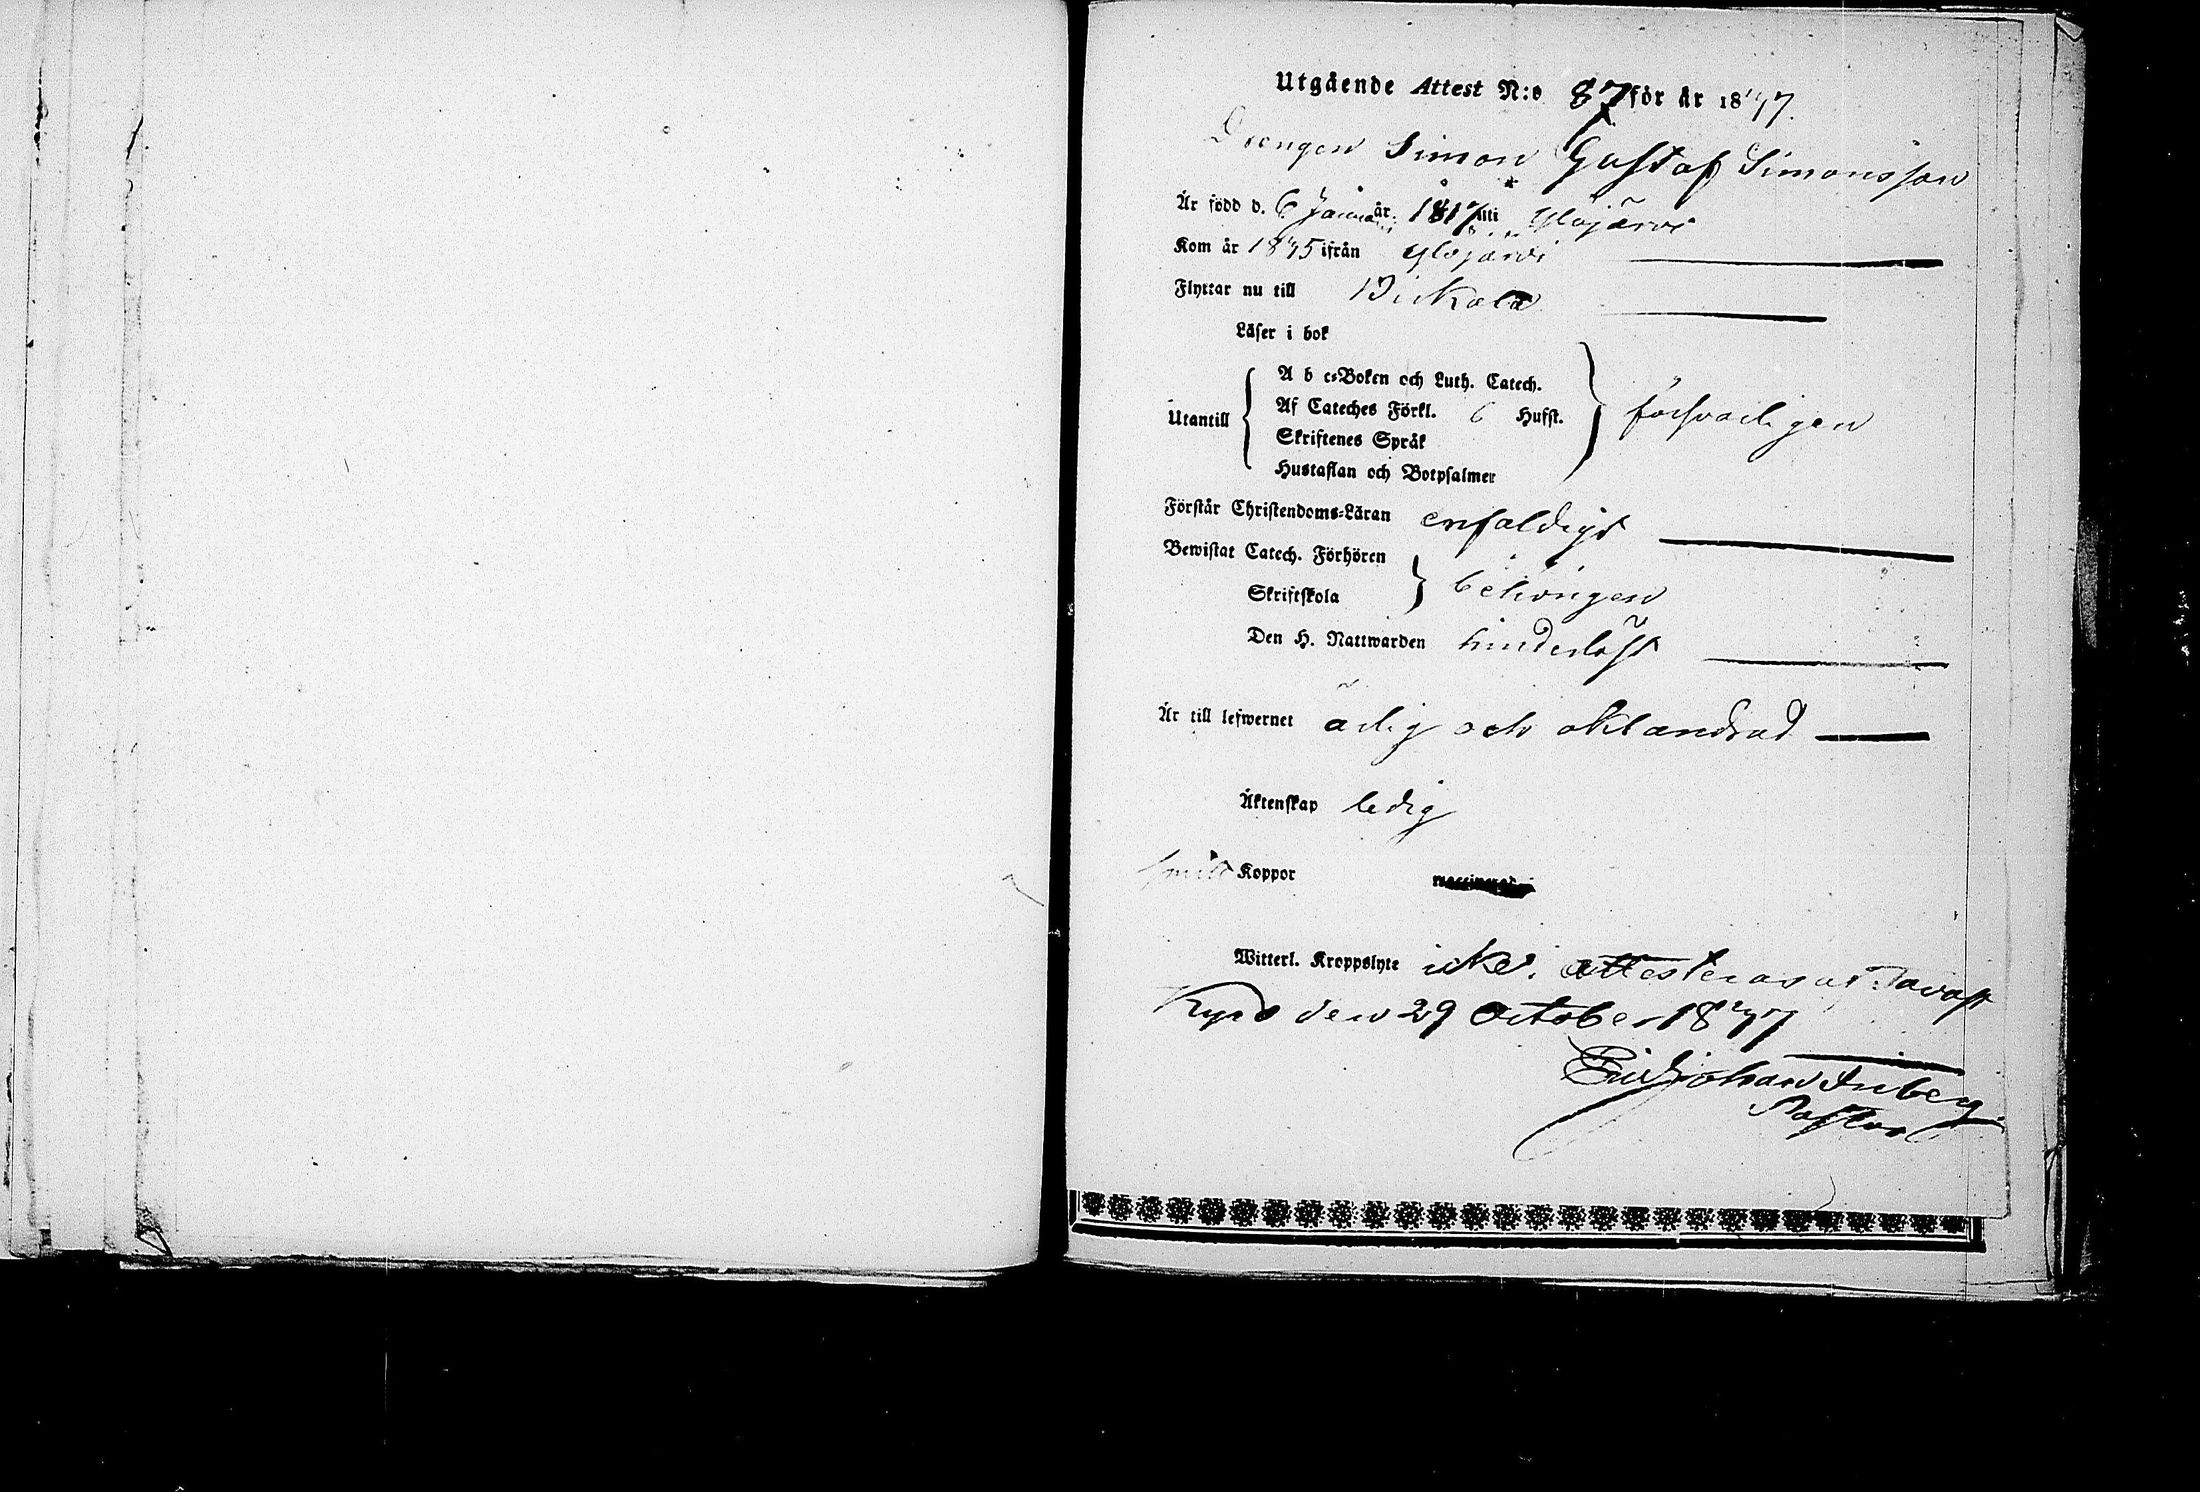 Utgående Attest N:o 87 för år 1847.
Drengen Simon Gustaf Simonsson
Är född d. 6 Januari år 1817 uti Ylöjärvi
Kom år 1845 ifrån Ylöjärvi
Flyttar nu till Birkala
Läser i bok
A b c-Boken och Luth. Catech.
Utantill Af Cateches Förkl. 6 Hufst. försvarligen
Skriftenes Språk
Hustaflan och Botpsalmer
Förstår Christendoms-Läran enfaldigt
Bewistat Catech. Förhören
Skriftskola behörigen
Den H. Nattwarden hinderlöst
Är till lefwernet ärlig och oklandrad
Äktenskap ledig
Koppor
Witterl. Kroppslyte icke; attesteras af Tavast
Kyro den 29 October 1847
Johan
Pastor